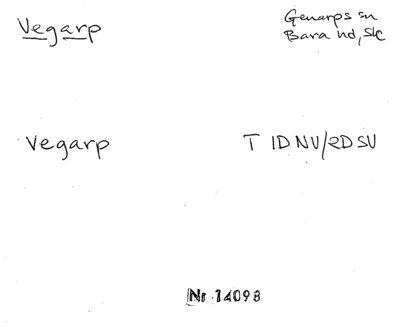 Vegarp
Genarps sn
Bara hd, Sk
Vegarp
T 1D NV/2D SV
Nr 14098